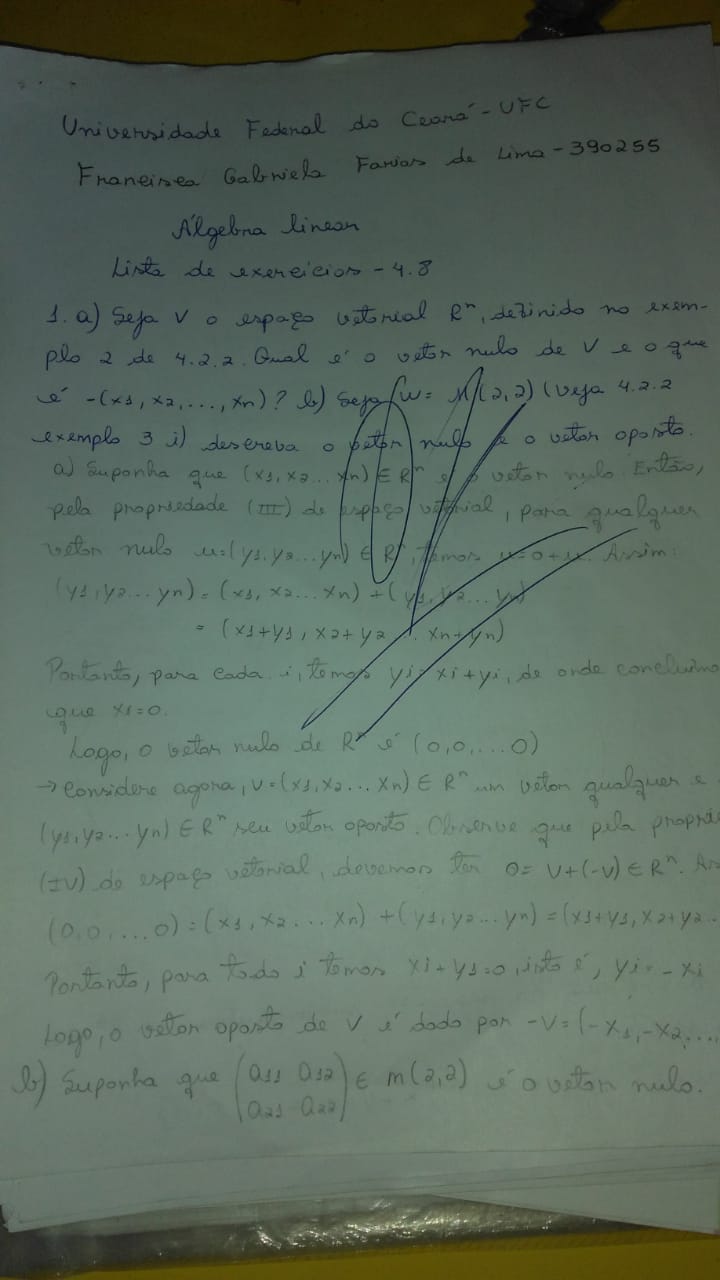 Universidade Federal do Ceará - UFC
Francisca Gabriela Farias de Lima - 390255
Álgebra linear
Lista de exercícios - 4.8
1. a) Seja V o espaço vetorial Rⁿ, definido no exem-
plo 2 de 4.2.2. Qual é o vetor nulo de V e o que
é -(x1, x2, ..., xn)? b) Seja W = M(2,2) (veja 4.2.2
exemplo 3 i) descreva o vetor nulo e o vetor oposto.
a) Suponha que (x1, x2... xn) ∈ Rⁿ é o vetor nulo. Então,
pela propriedade (III) de espaço vetorial, para qualquer
vetor nulo u=(y1, y2... yn) ∈ Rⁿ, temos u=0+u. Assim:
(y1, y2... yn) = (x1, x2... xn) + (y1, y2... yn)
= (x1+y1, x2+y2 ... xn+yn)
Portanto, para cada i, temos yi=xi+yi, de onde concluímo
que x1=0.
Logo, o vetor nulo de Rⁿ é (0,0,...0)
→ Considere agora, V=(x1, x2... xn) ∈ Rⁿ um vetor qualquer e
(y1, y2... yn) ∈ Rⁿ seu vetor oposto. Observe que pela proprie
(IV) de espaço vetorial, devemos ter 0= V+(-V) ∈ Rⁿ. As
(0,0,...0) = (x1, x2... xn) + (y1, y2... yn) = (x1+y1, x2+y2..
Portanto, para todo i temos xi+y1=0, isto é, yi=-xi
Logo, o vetor oposto de V é dado por -V=(-x1, -x2,...
b) Suponha que (a11 a12
a21 a22) ∈ m(2,2) é o vetor nulo.